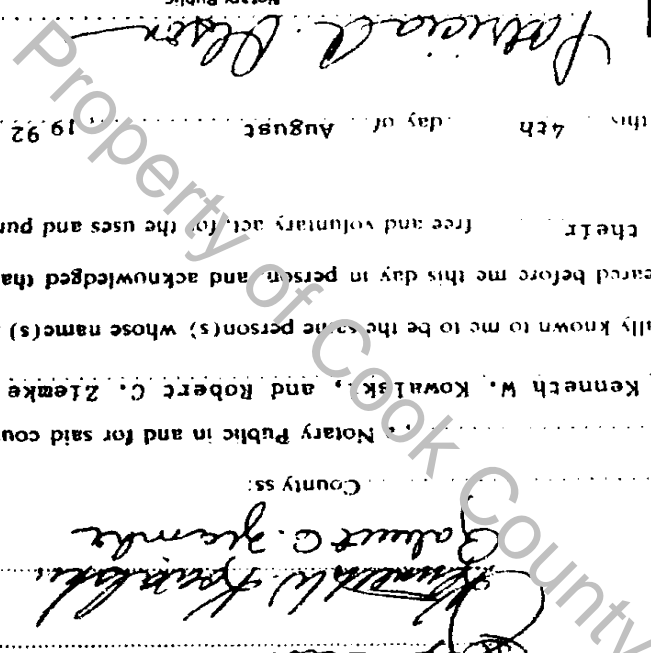 Kenneth W. Kowalski
Robert C. Ziemke
County ss:
, a Notary Public in and for said cou
Kenneth W. Kowalski, and Robert C. Ziemke
ally known to me to be the same person(s) whose name(s)
eared before me this day in person, and acknowledged tha
their free and voluntary act, for the uses and pur
this 4th day of August 19 92
Patricia A. Olson
Notary Public
Property of Cook County